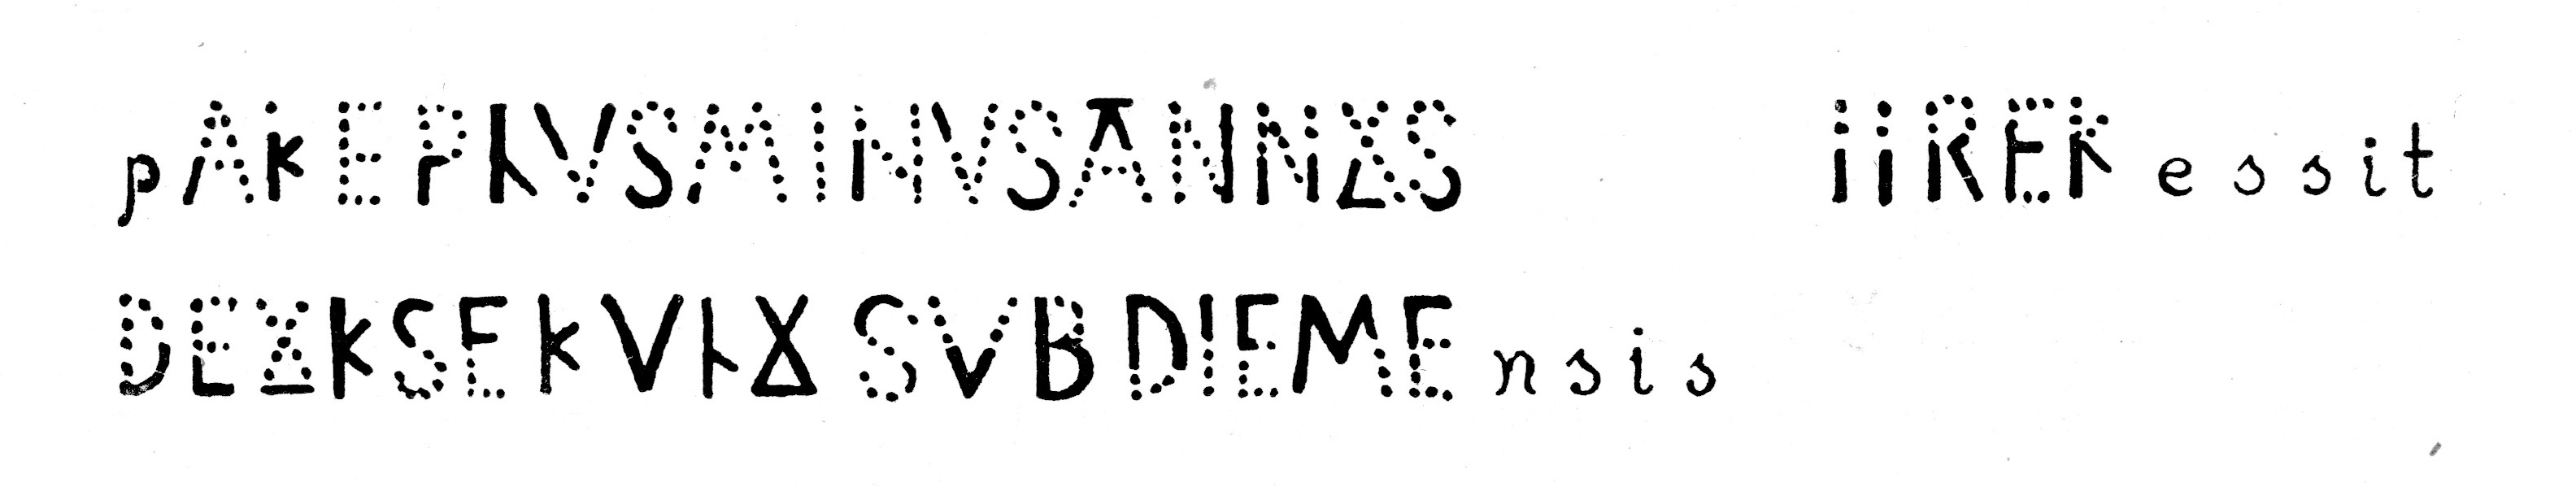 pAKEPLVSMINVSANNOS IIREKessit
DEOKSEKVLO SVBDIEMEnsis